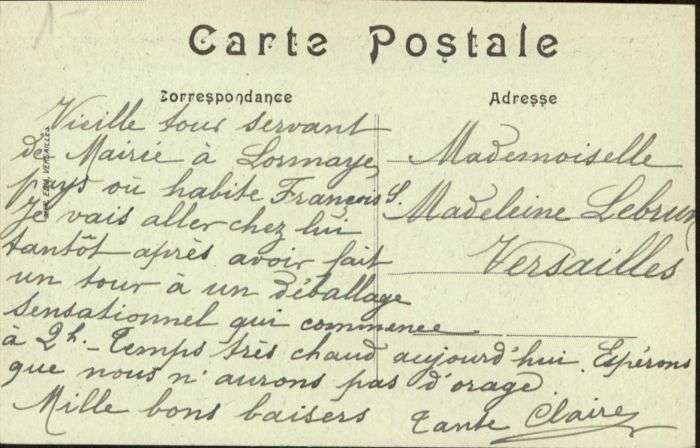 1-
Carte Postale
Correspondance
Adresse
Vieille tour servant
de Mairie à Lormaye,
pays où habite François S.
Je vais aller chez lui
tantôt après avoir fait
un tour à un déballage
sensationnel qui commence
à 2h. - Temps très chaud aujourd'hui. Espérons
que nous n'aurons pas d'orage.
Mille bons baisers
Tante Claire
Mademoiselle
Madeleine Lebrun
Versailles
EDIT. VERSAILLES